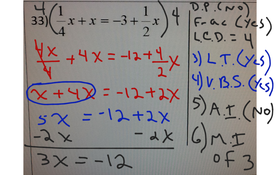 33) 4(1/4 x + x = -3 + 1/2 x) 4
4x/4 + 4x = -12 + 4/2 x
x + 4x = -12 + 2x
5x = -12 + 2x
-2x -2x
3x = -12
D.P. (NO)
Frac (Yes)
L.C.D. = 4
3) L.T. (Yes)
4) V.B.S. (Yes)
5) A.I. (NO)
6) M.I
of 3